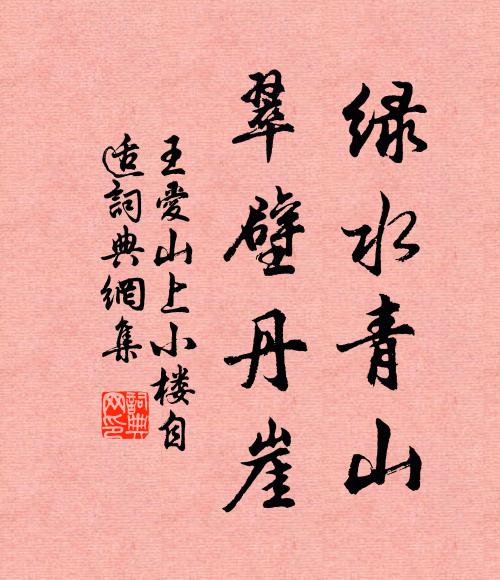 绿水青山
翠壁丹崖
王爱山上小楼自
适词典網集
詞典
网印